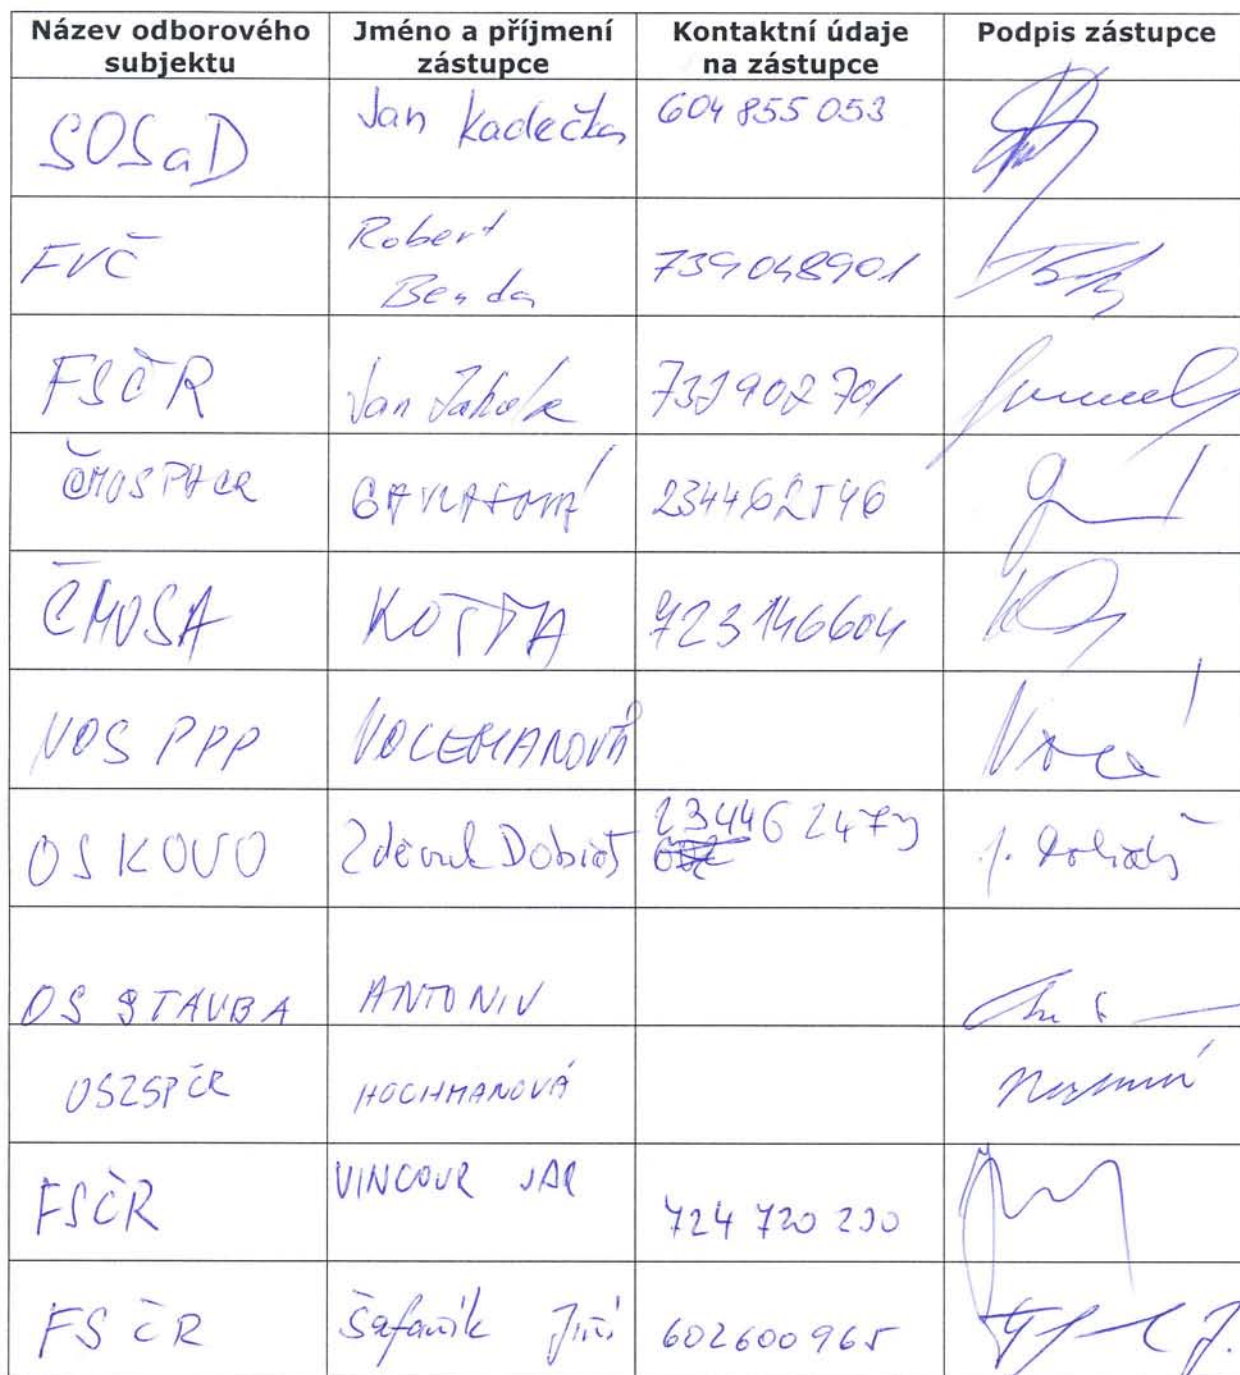 Název odborového subjektu | Jméno a příjmení zástupce | Kontaktní údaje na zástupce | Podpis zástupce
SOSaD | Jan Kadečka | 604 855 053
FVČ | Robert Benda | 739048901
FSČR | Jan | 902 701
ČMOS PHCR
ČMOSA | KOTRBA | 723146604
NOS PPP | VOCEMANOVÁ
OS KOVO | Zdeněk Dobiáš | 23446 2473
OS STAVBA | ANTONIV
OSZSPČR | HOCHMANOVÁ
FSČR | VINCOUR JAR | 724 720 230
FSČR | Šafařík Jiří | 602600965